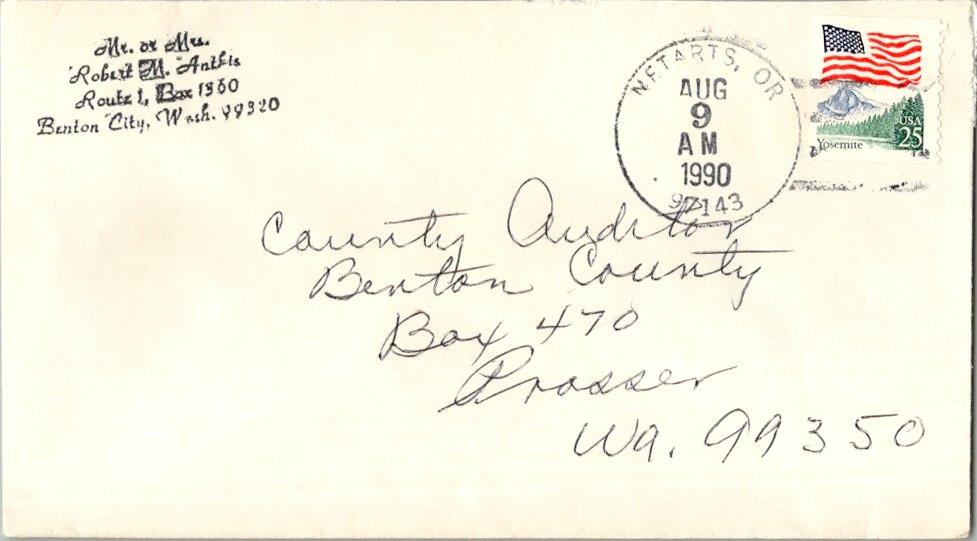 Mr. or Mrs.
Robert M. Anthis
Route 1, Box 1360
Benton City, Wash. 99320
NETARTS, OR
AUG
9
AM
1990
97143
USA
25
Yosemite
County Auditor
Benton County
Box 470
Prosser
Wa. 99350